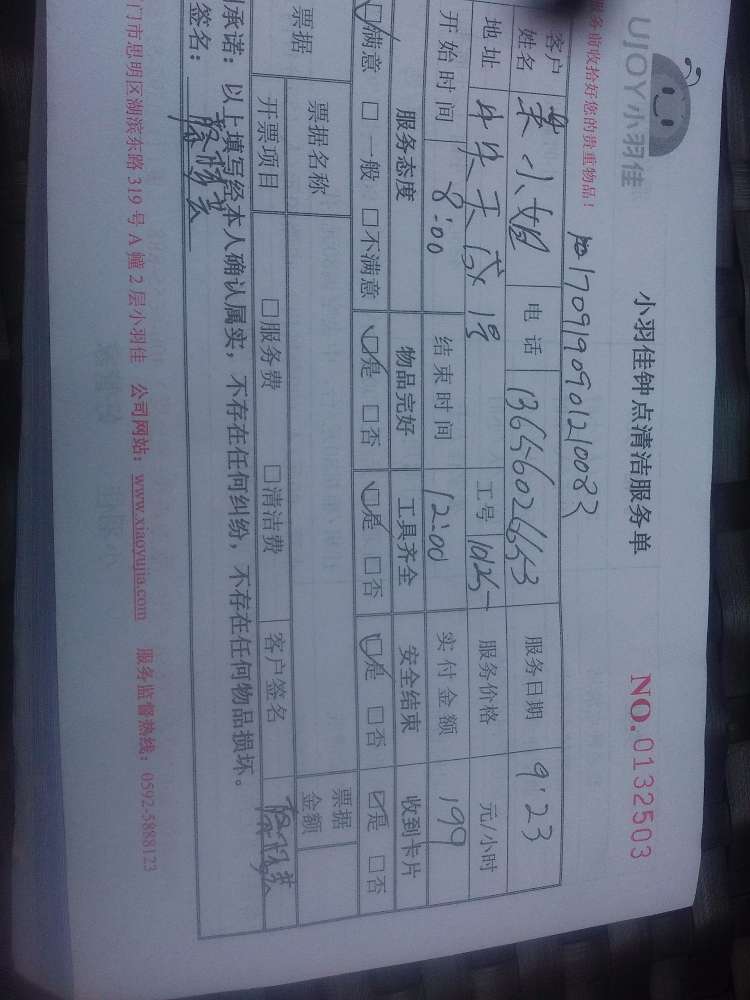 UJOY小羽佳
小羽佳钟点清洁服务单
NO.0132503
服务前收拾好您的贵重物品!
1709190901210083
客户姓名 小姐 电话 服务日期 9.23
地址 1号 工号 服务价格 元/小时
开始时间 8:00 结束时间 12:00 实付金额 199
服务态度 物品完好 工具齐全 安全结束 收到卡片
□满意 □一般 □不满意 □是 □否 □是 □否 □是 □否 □是 □否
票据 票据名称 票据金额
开票项目 □服务费 □清洁费 客户签名
承诺:以上填写经本人确认属实,不存在任何纠纷,不存在任何物品损坏。
签名:
门市思明区湖滨东路 319 号 A 幢 2 层小羽佳 公司网站:www.xiaoyujia.com 服务监督热线:0592-5888123